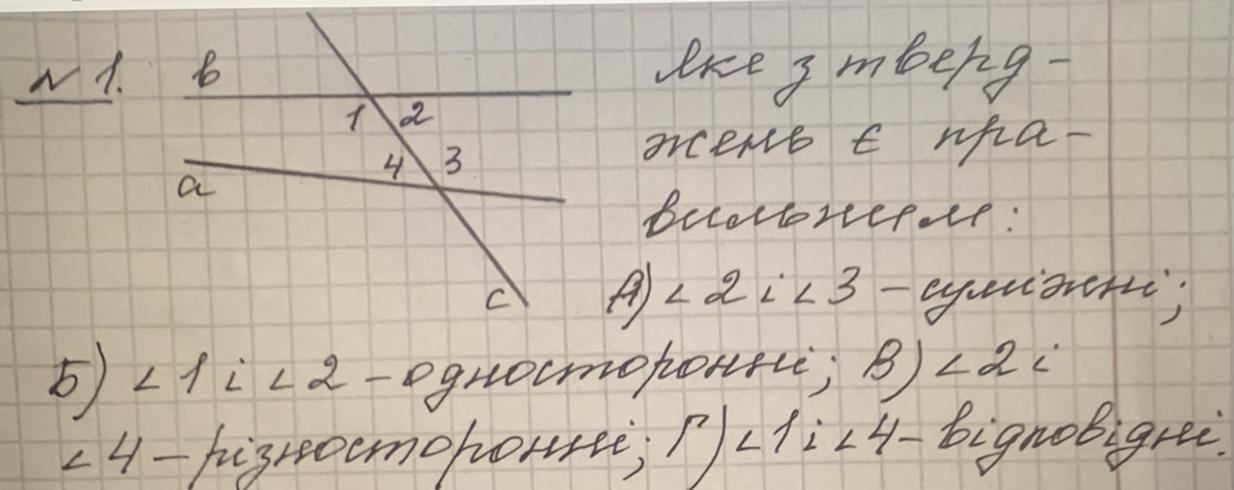 № 1.
в
1 2
4 3
а
с
Яке з тверд-
жень є пра-
вильним:
А) ∠2 і ∠3 – суміжні;
Б) ∠1 і ∠2 – односторонні; В) ∠2 і
∠4 – різносторонні; Г) ∠1 і ∠4 – відповідні.